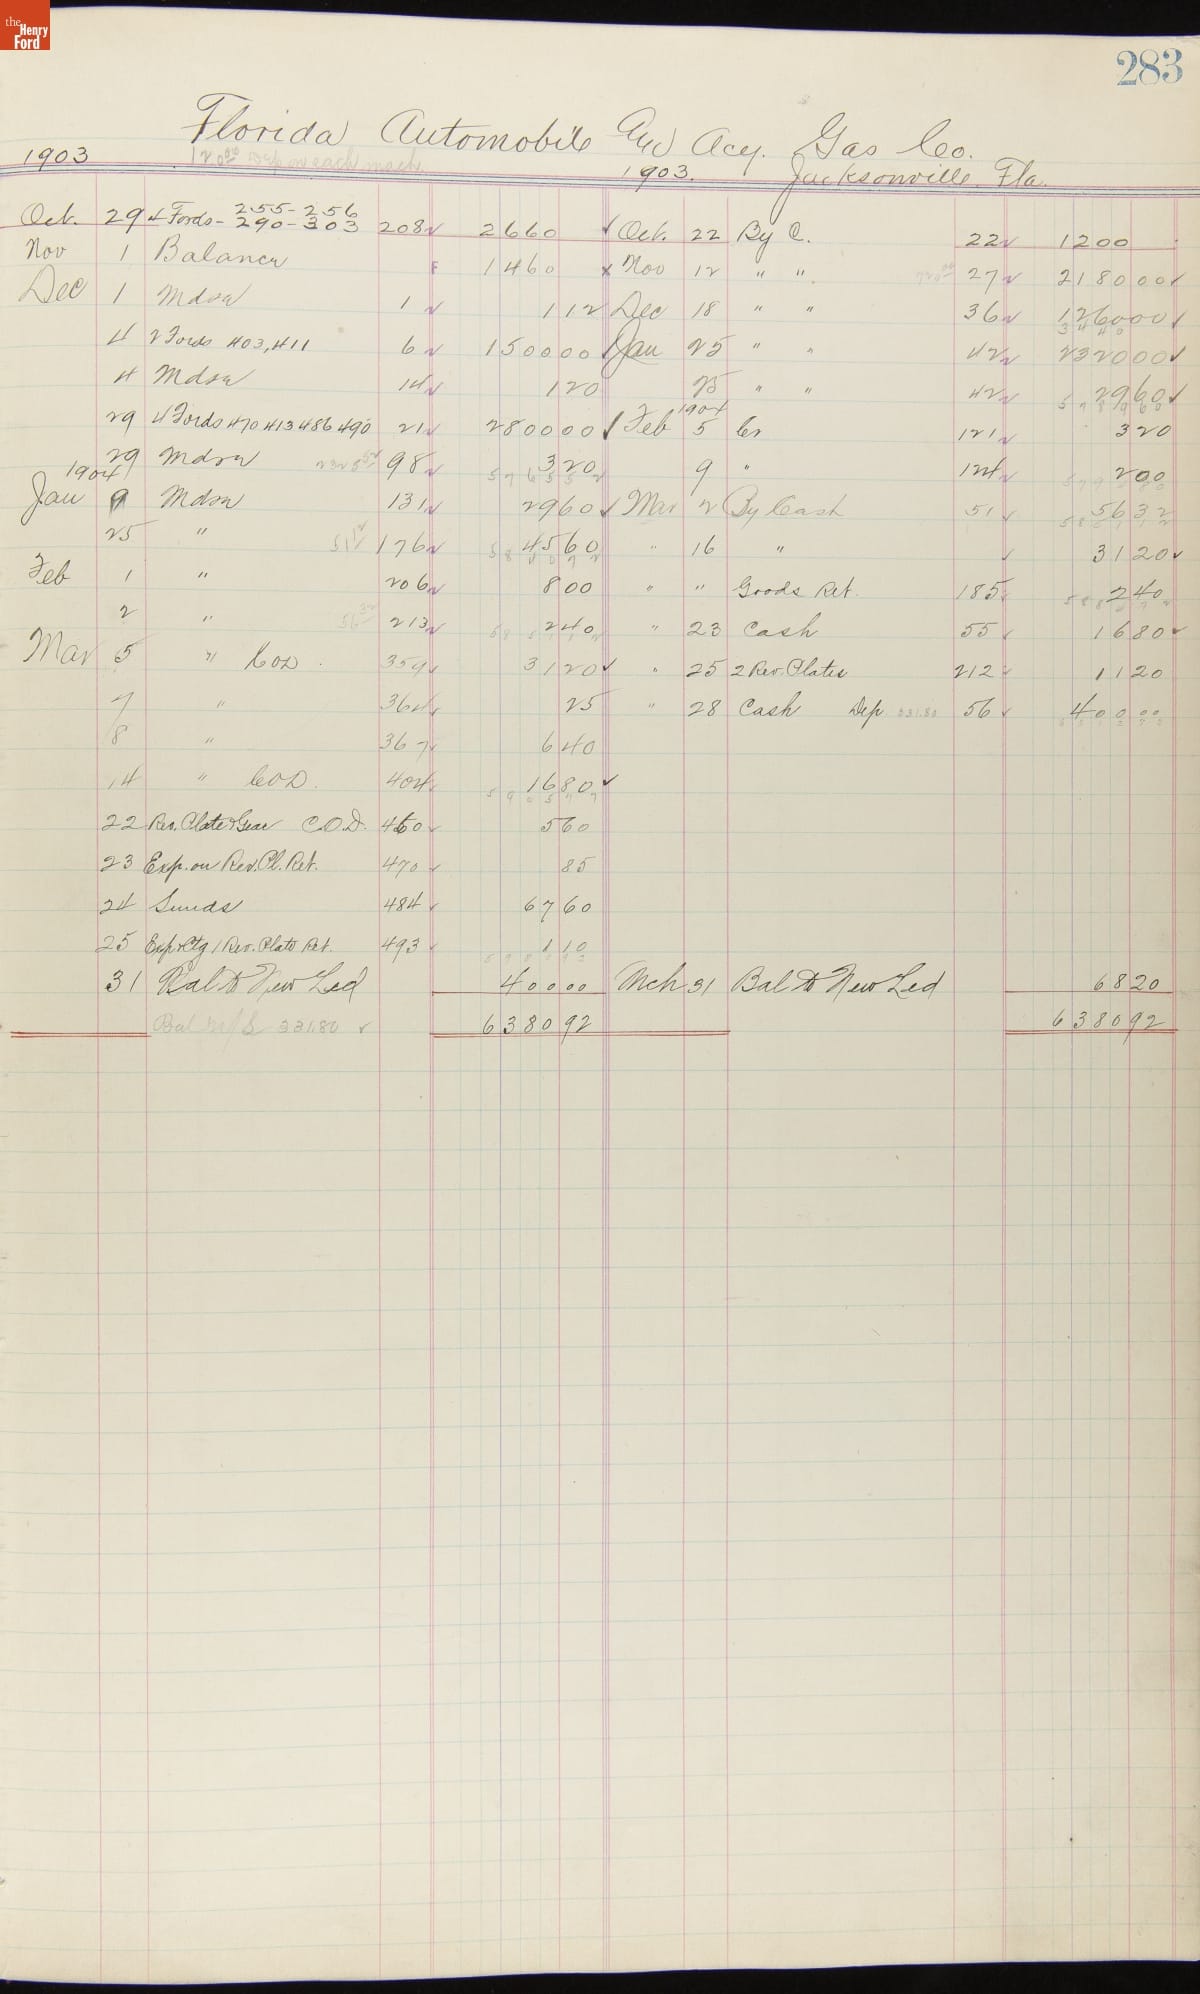 the Henry Ford
283
Florida Automobile And Acy. Gas Co.
1903 120.00 Dep on each mach. 1903. Jacksonville, Fla.
Oct. 29 4 Fords - 255 - 256 - 290 - 303 208 2660 Oct. 22 By C. 22 1200
Nov 1 Balance F 1460 x Nov 12 " " 27 218000
Dec 1 Mdse 1 112 Dec 18 " " 36 126000
4 2 Fords 403, 411 6 150000 Jan 25 " " 42 232000
4 Mdse 14 120 25 " " 42 2960
29 4 Fords 470 413 486 490 21 280000 1904 Feb 5 Cr 121 320
29 Mdse 98 320 9 " 124 200
1904 Jan 9 Mdse 131 2960 Mar 2 By Cash 51 5632
25 " 176 4560 " 16 " 3120
Feb 1 " 206 800 " " Goods Ret. 185 240
2 " 213 240 " 23 Cash 55 1680
Mar 5 " COD. 359 3120 " 25 2 Rev. Plates 212 1120
7 " 364 25 " 28 Cash Dep 331.80 56 40000
8 " 367 640
14 " COD. 404 1680
22 Rev. Plate & Gear C.O.D. 460 560
23 Exp. on Rev. Pl. Ret. 470 85
24 Sunds 484 6760
25 Exp & Ctg 1 Rev. Plate Ret. 493 110
31 Bal to New Led 40000 Mch 31 Bal to New Led 6820
Bal 331.80 638092 638092